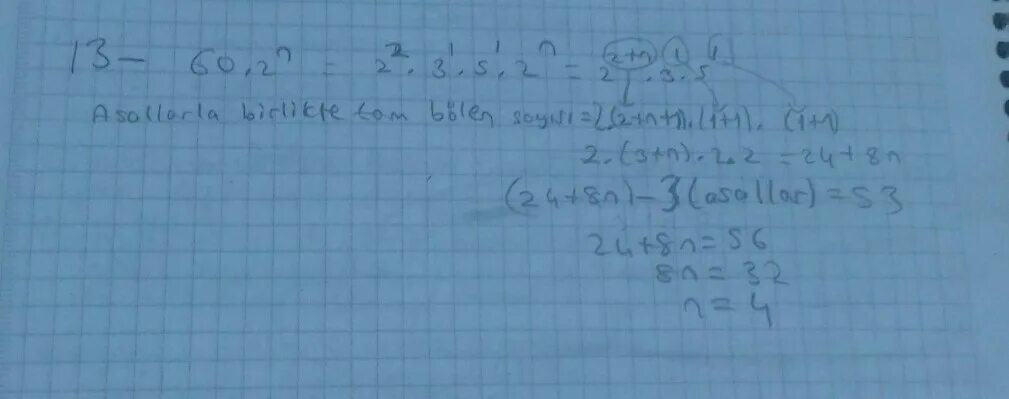 13- 60.2ⁿ = 2².3¹.5¹.2ⁿ = 2²⁺ⁿ.3¹.5¹
Asallarla birlikte tam bölen sayısı=2.(2+n+1).(1+1).(1+1)
2.(3+n).2.2=24+8n
(24+8n)-3(asallar)=53
24+8n=56
8n=32
n=4